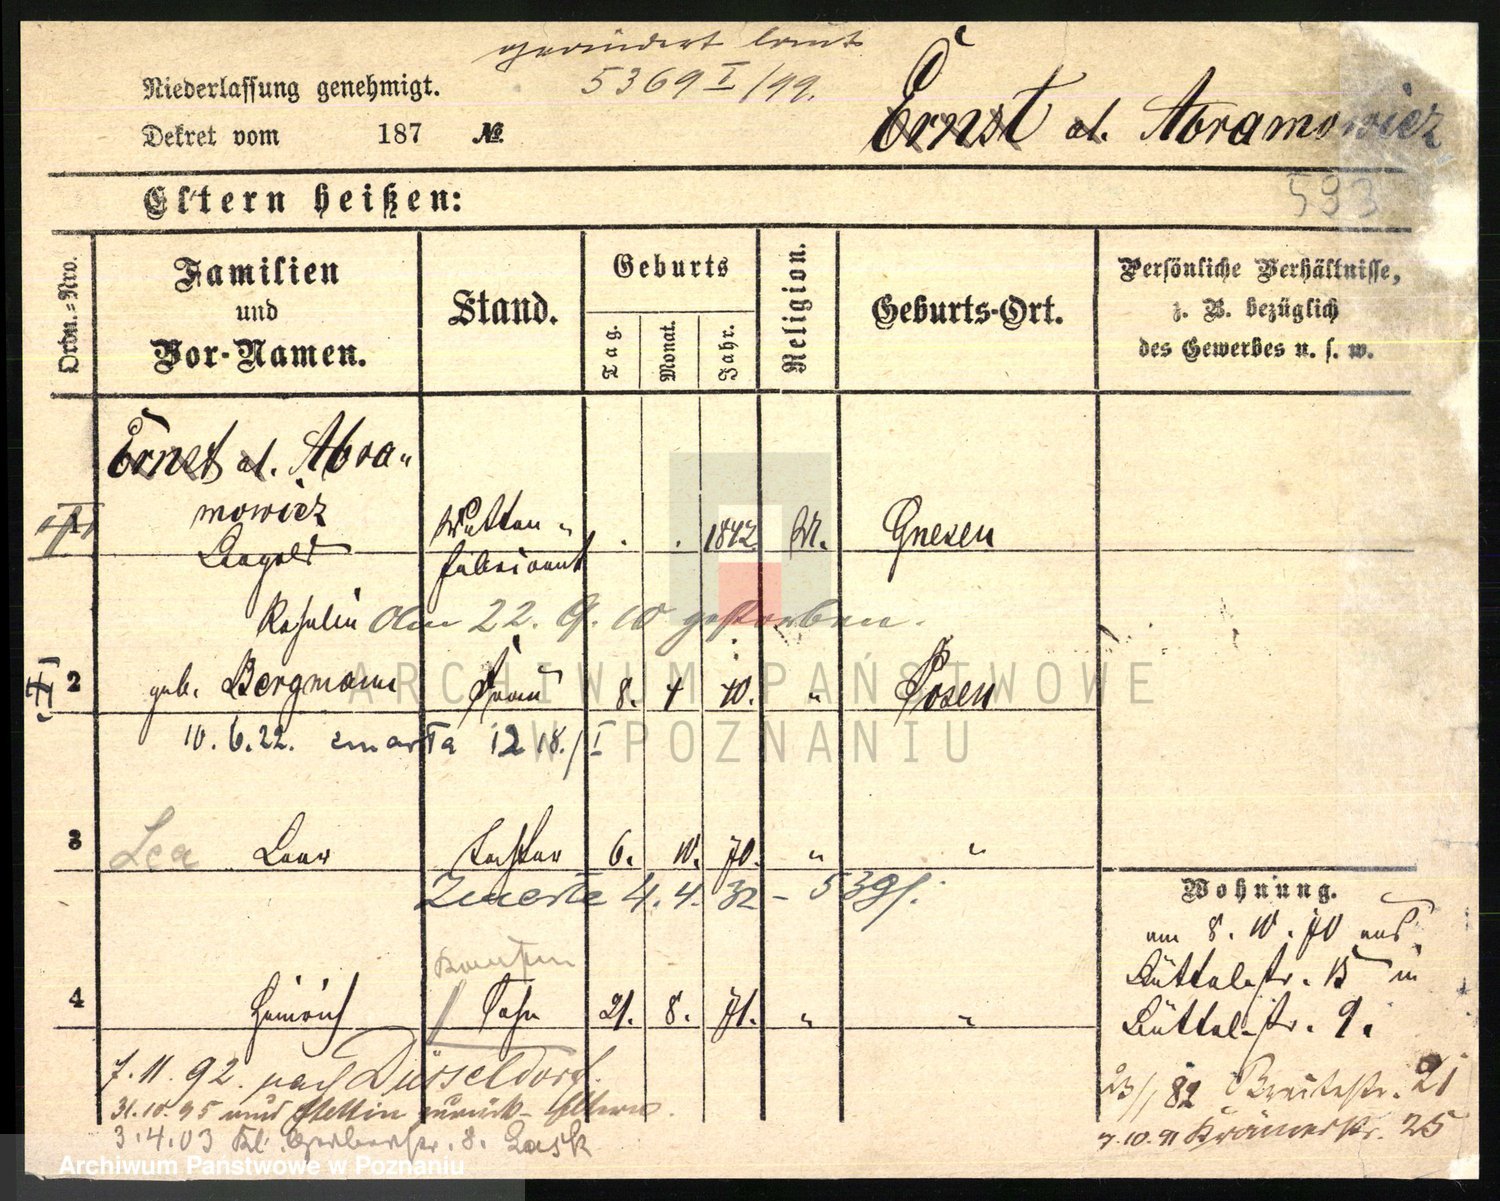 geändert laut
5369 I/99.
Niederlassung genehmigt.
Dekret vom 187 №
Ernst al. Abramowicz
593
Eltern heißen:
Ordn.=Nro.
Familien
und
Vor-Namen.
Stand.
Geburts
Tag.
Monat.
Jahr.
Religion.
Geburts-Ort.
Persönliche Verhältnisse,
z. B. bezüglich
des Gewerbes u. s. w.
Ernst al. Abra-
mowicz
1 Leopold
fabricant 1842. M. Gnesen
Am 22. 9. 10 gestorben.
2 geb. Bergmann Frau 8. 4 40. " Posen
10. 6. 22. zmarła 1218./I
3 Lea Tochter 6. 10. 70. " "
Zmarła 4. 4. 32 - 539/.
4 Heinrich Sohn 21. 8. 71. " "
7. 11. 92. nach Düsseldorf.
31.10.95 aus Stettin zurück - Eltern.
3.4.03 Kl. Gerberstr. 8. Lask
Wohnung.
am 8. 10. 70 aus
Büttelstr. 15 in
Büttelstr. 9.
23/1 82 Breitestr. 21
7.10.91 Krämerstr. 25
ARCHIWUM PAŃSTWOWE
W POZNANIU
Archiwum Państwowe w Poznaniu